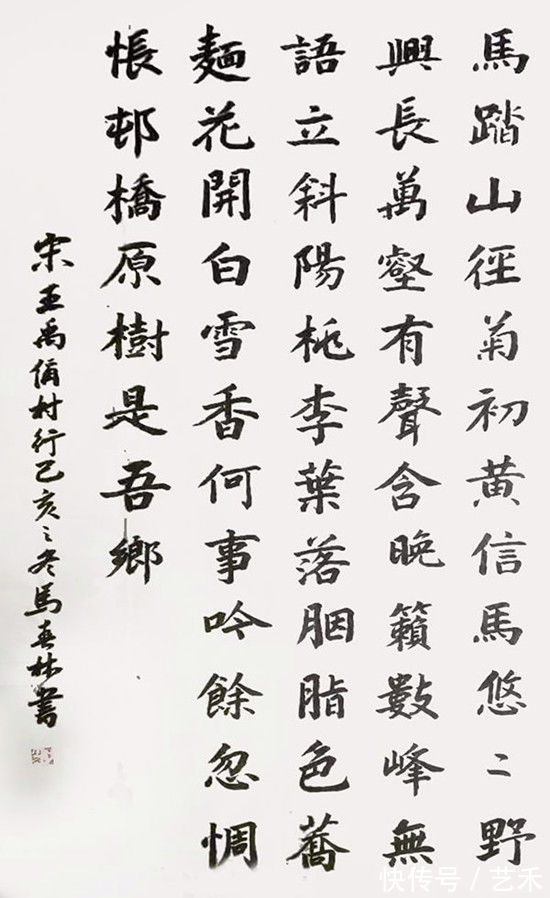 馬踏山徑菊初黄信馬悠〻野
興長萬壑有聲含晚籟數峰無
語立斜陽桃李葉落胭脂色蕎
麵花開白雪香何事吟餘忽惆
悵邨橋原樹是吾鄉
宋王禹偁村行己亥之冬馬春林書
快传号 / 艺禾